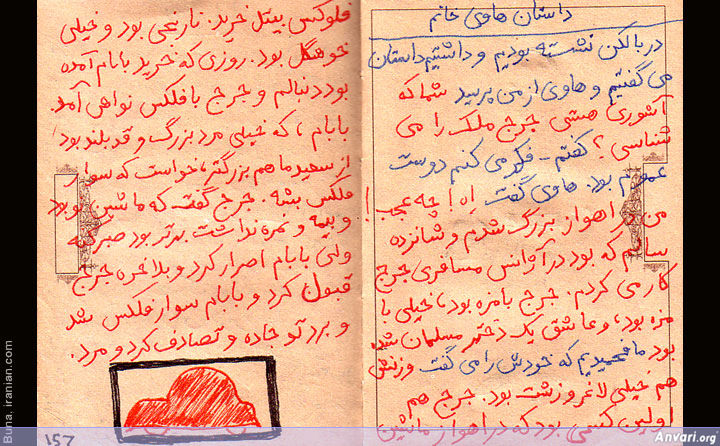 داستان هاوی خانم
در بالکن نشسته بودیم و داشتیم داستان
می گفتیم و هاوی از من پرسید شما که
آشوری هستی جرج ملک را می
شناسی؟ گفتم - فکر می کنم دوست
عمویم بود. هاوی گفت اِه! چه عجب!
من در اهواز بزرگ شدم و شانزده
سالم که بود در آژانس مسافری جرج
کار می کردم. جرج بامزه بود، خیلی با
مزه بود، و عاشق یک دختر مسلمان شده
بود ما فهمیدیم که خودش را می گفت وزنش
هم خیلی لاغر و زشت بود. جرج هم
اولین کسی بود که در اهواز ماشین
فلوکس بیتل خرید. نارنجی بود و خیلی
خوشگل بود. روزی که خرید بابام آمده
بود دنبالم و جرج با فلکس نواهی آمد.
بابام، که خیلی مرد بزرگ و قد بلند بود
از سعید ما هم بزرگتر، خواست که سوار
فلکس بشه. جرج گفت که ماشین نو بود
و بیمه و نمره نداشت بهتر بود صبر کنه
ولی بابام اصرار کرد و بلاخره جرج
قبول کرد و بابام سوار فلکس شد
و برد تو جاده و تصادف کرد و مرد.
۱۵۲
Buna. iranian.com
Anvari.org